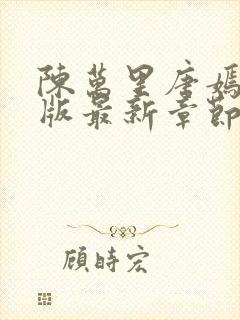 陳萬里唐嫣
版最新章節
顧時宏